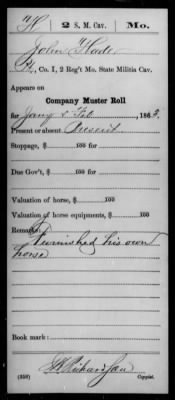 H 2 S. M. Cav. Mo.
John
Co. I, 2 Reg't Mo. State Militia Cav.
Appears on
Company Muster Roll
for Jany & Feb, 1863.
Present or absent Present
Stoppage, $ 100 for
Due Gov't, $ 100 for
Valuation of horse, $ 100
Valuation of horse equipments, $ 100
Remarks:
Furnished his own
horse
Book mark:
Richardson
(858) Copyist.